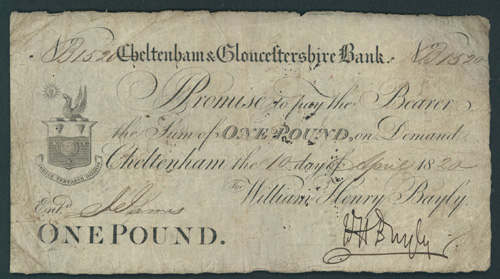 No B1520 Cheltenham & Gloucestershire Bank. No B1520
I Promise to pay the Bearer
the Sum of ONE POUND, on Demand
Cheltenham the 10 day of April 1820
For William Henry Bayly.
Entd. J James
WH Bayly
ONE POUND.